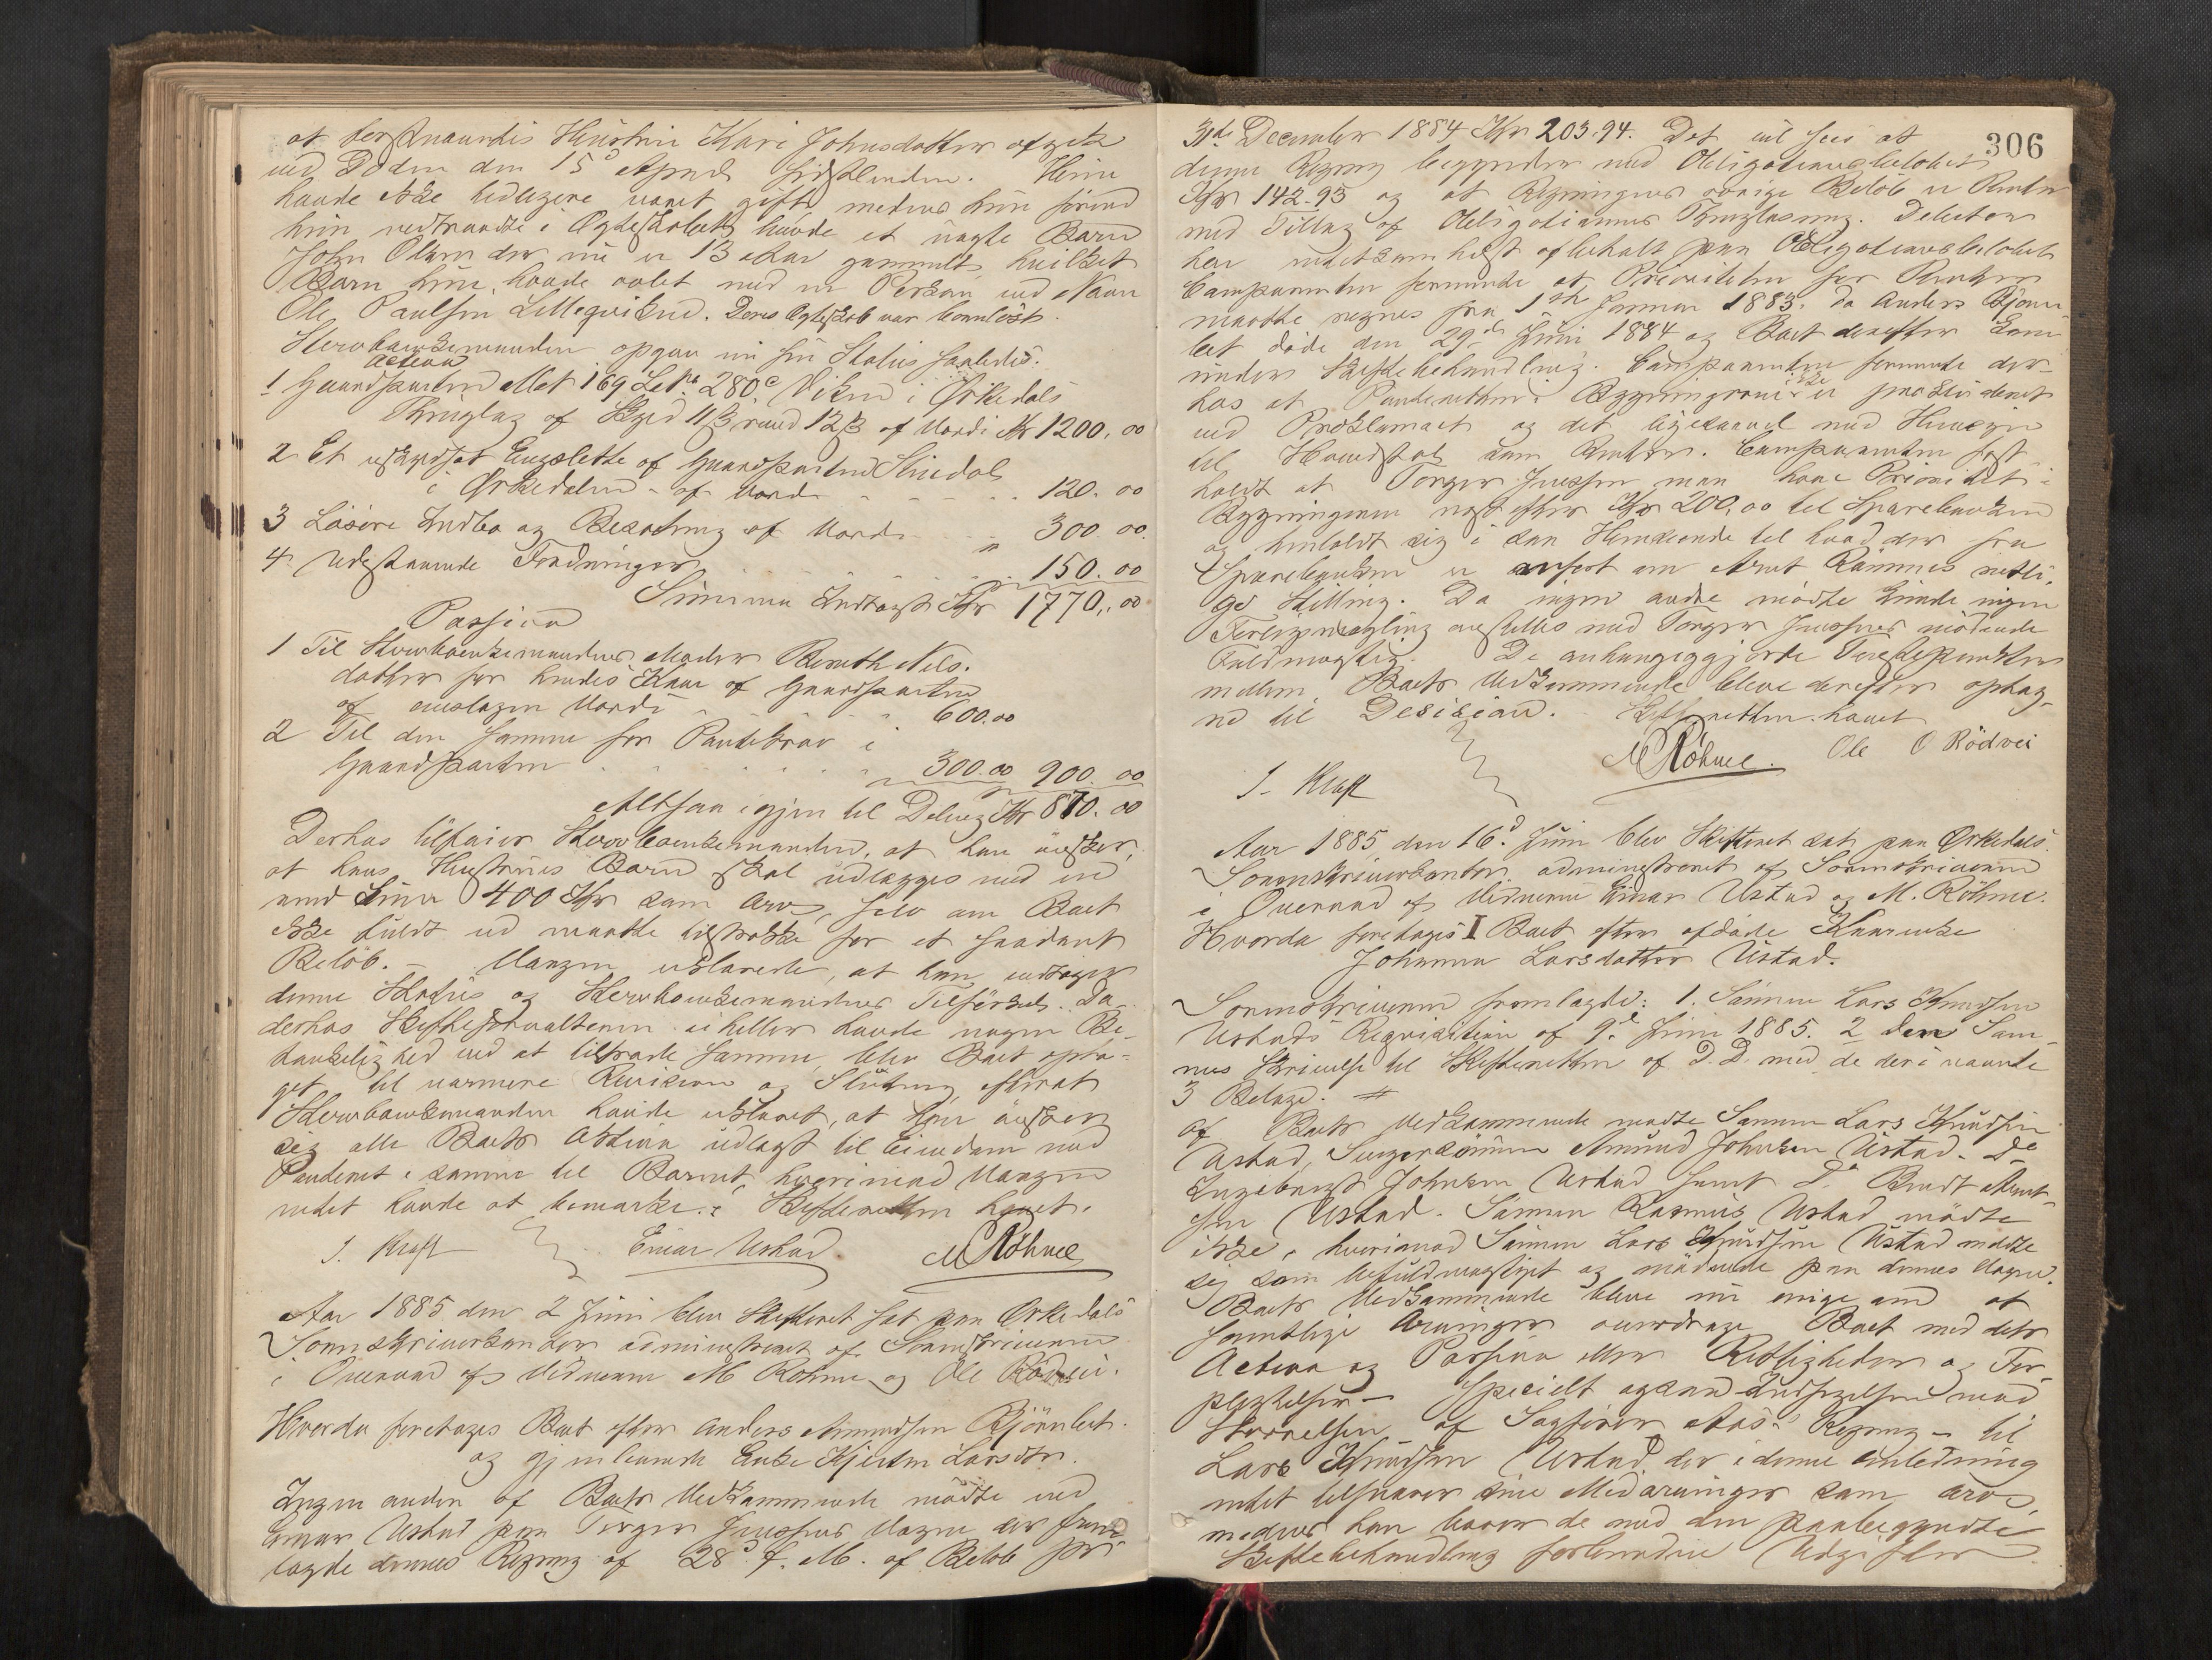 at berømmendes Hustru Kari Johnsdatter afgik
ved Døden den 15de April sidstleden. Hun
havde ikke tidligere været gift medens hun førend
hun indtraadte i Ægteskabet havde et uægte Barn
John Olsen der nu er 13 Aar gammelt, hvilket
Barn hun havde avlet med en Person ved Navn
Ole Paulsen Lillegviknd. Deres Ægteskab var barnløst.
Stervboenkemanden opgav nu sin Status saaledes:
Activa
1 Gaardparten Mat 169 Lb No 280c Viken i Ørkedals
Thinglag af Skyld 11 ß rund 12 ß af Værdi Kr 1200.00
2 Et uskyldsat Engslette af Gaardparten
i Ørkedalen - af Værdi 120.00
3 Løsøre Indbo og Besætning af Værdi " 300.00
4 Udestaaende Fordringer 150.00
Summa Indtægt Kr 1770.00
Passiva
1 Til Stervboenkemandens Moder Bereth Nils-
datter for hendes Kaar af Gaardparten
af anslagen Værdi 600.00
2 Til den samme for Pantebrev i
Gaardparten 300.00 900.00
Altsaa igjen til Deling Kr 870.00
Derhos tilføier Stervboenkemanden, at han ønsker,
at hans Hustrues Barn skal udlægges med en
rund Sum 400 Kr som Arv, selv om Boet
ikke fuldt ud maatte tilstrække for et saadant
Beløb. - Værgen erklærede, at han vedtager
denne Status og Stervboenkemandens Tilførsel. Da
derhos Skifteforvalteren ei heller havde nogen Be-
tænkelighed ved at tiltræde samme, blev Boet opta-
get til nærmere Revision og Slutning efterat
Stervboenkemanden havde erklæret, at han ønsker
sig alle Boets Activa udlagt til Eiendom mod
Panderet i samme til Barnet, hvorimod Værgen
intet havde at bemærke. Skifteretten hævet.
J. Kraft Einar Ustad M Röhme
Aar 1885 den 2 Juni blev Skifteret sat paa Ørkedals
Sorenskriverkontor administreret af Sorenskriveren
i Overvær af Vidnerne M Röhme og Ole Rødvei.
Hvorda foretages Boet efter Anders Amundsen Bjørnbet
og gjenlevende Enke Kjersten Larsdtr.
Ingen anden af Boets Vedkommende mødte end
Einar Ustad paa Torger Jonsens Vegne der frem
lagde dennes Regning af 28de f. M. af Beløb pr
306
31de December 1884 Kr 203.94. Det vil sees at
denne Regning begynder med Obligationsbeløbet
Kr 142.93 og at Regningens øvrige Beløb er Renter
med Tillæg af Obligationens Thinglæsning. Debitor
har intetsomhelst afbetalt paa Obligationsbeløbet
Comparenten formente at Prioriteten for Renter
maatte regnes fra 1ste Januar 1883. Da Anders Bjørn-
bet døde den 29de Juni 1884 og Boet derefter kom
under Skiftebehandling. Comparenten formente der-
hos at Panteretten i Bygningerne ikke er præcluderet
ved Proclamaet og det ligesaavel med Hensyn
til Hovedstol som Renter. Comparenten fast
holdt at Torger Jonsen maa have Prioritet i
Bygningerne næst efter Kr 200.00 til Sparebanken
og henholdt sig i saa Henseende til hvad der fra
Sparebanken er anført om Arnt Rømmes retli-
ge Stilling. Da ingen andre mødte kunde ingen
Forligsmægling anstilles med Torger Jonsens mødende
Fuldmægtig. De anhængiggjorte Tvistepunkter
mellem Boets Vedkommende bleve derefter optag-
ne til Decision. Skifteretten hævet
J. Kraft M Röhme. Ole O Rödvei
Aar 1885 den 16de Juni blev Skifteret sat paa Ørkedals
Sorenskriverkontor administreret af Sorenskriveren
i Overvær af Vidnerne Einar Ustad og M. Röhme.
Hvorda foretages I Boet efter afdøde Kaarenke
Johanna Larsdatter Ustad.
Sorenskriveren fremlagde: 1. Sønnen Lars Knudsen
Ustads Reqvisition af 9de Juni 1885. 2 den Sam-
mes Skrivelse til Skifteretten af D.D. med de deri nævnte
3 Bilage. #
Af Boets Vedkommende mødte Sønnen Lars Knudsen
Ustad, Svigersønnen Amund Johnsen Ustad. De
Ingebrigt Johnsen Ustad samt Do Berndt Arnt-
sen Ustad. Sønnen Rasmus Ustad mødte
ikke, hvorimod Sønnen Lars Knudsen Ustad meldte
sig som befuldmægtiget og mødende paa dennes Vegne.
Boets Vedkommende bleve nu enige om at
samtlige Arvinger overdrage Boet med dets
Activa og Passiva eller Rettigheder og For-
pligtelser - specielt ogsaa Indsigelsen mod
Størrelsen af Sagfører Aas' Regning - til
Lars Knudsen Ustad, der i denne Anledning
intet tilsvarer sine Medarvinger som Arv,
medens han bærer de med den paabegyndte
Skiftebehandling forbundne Udgifter